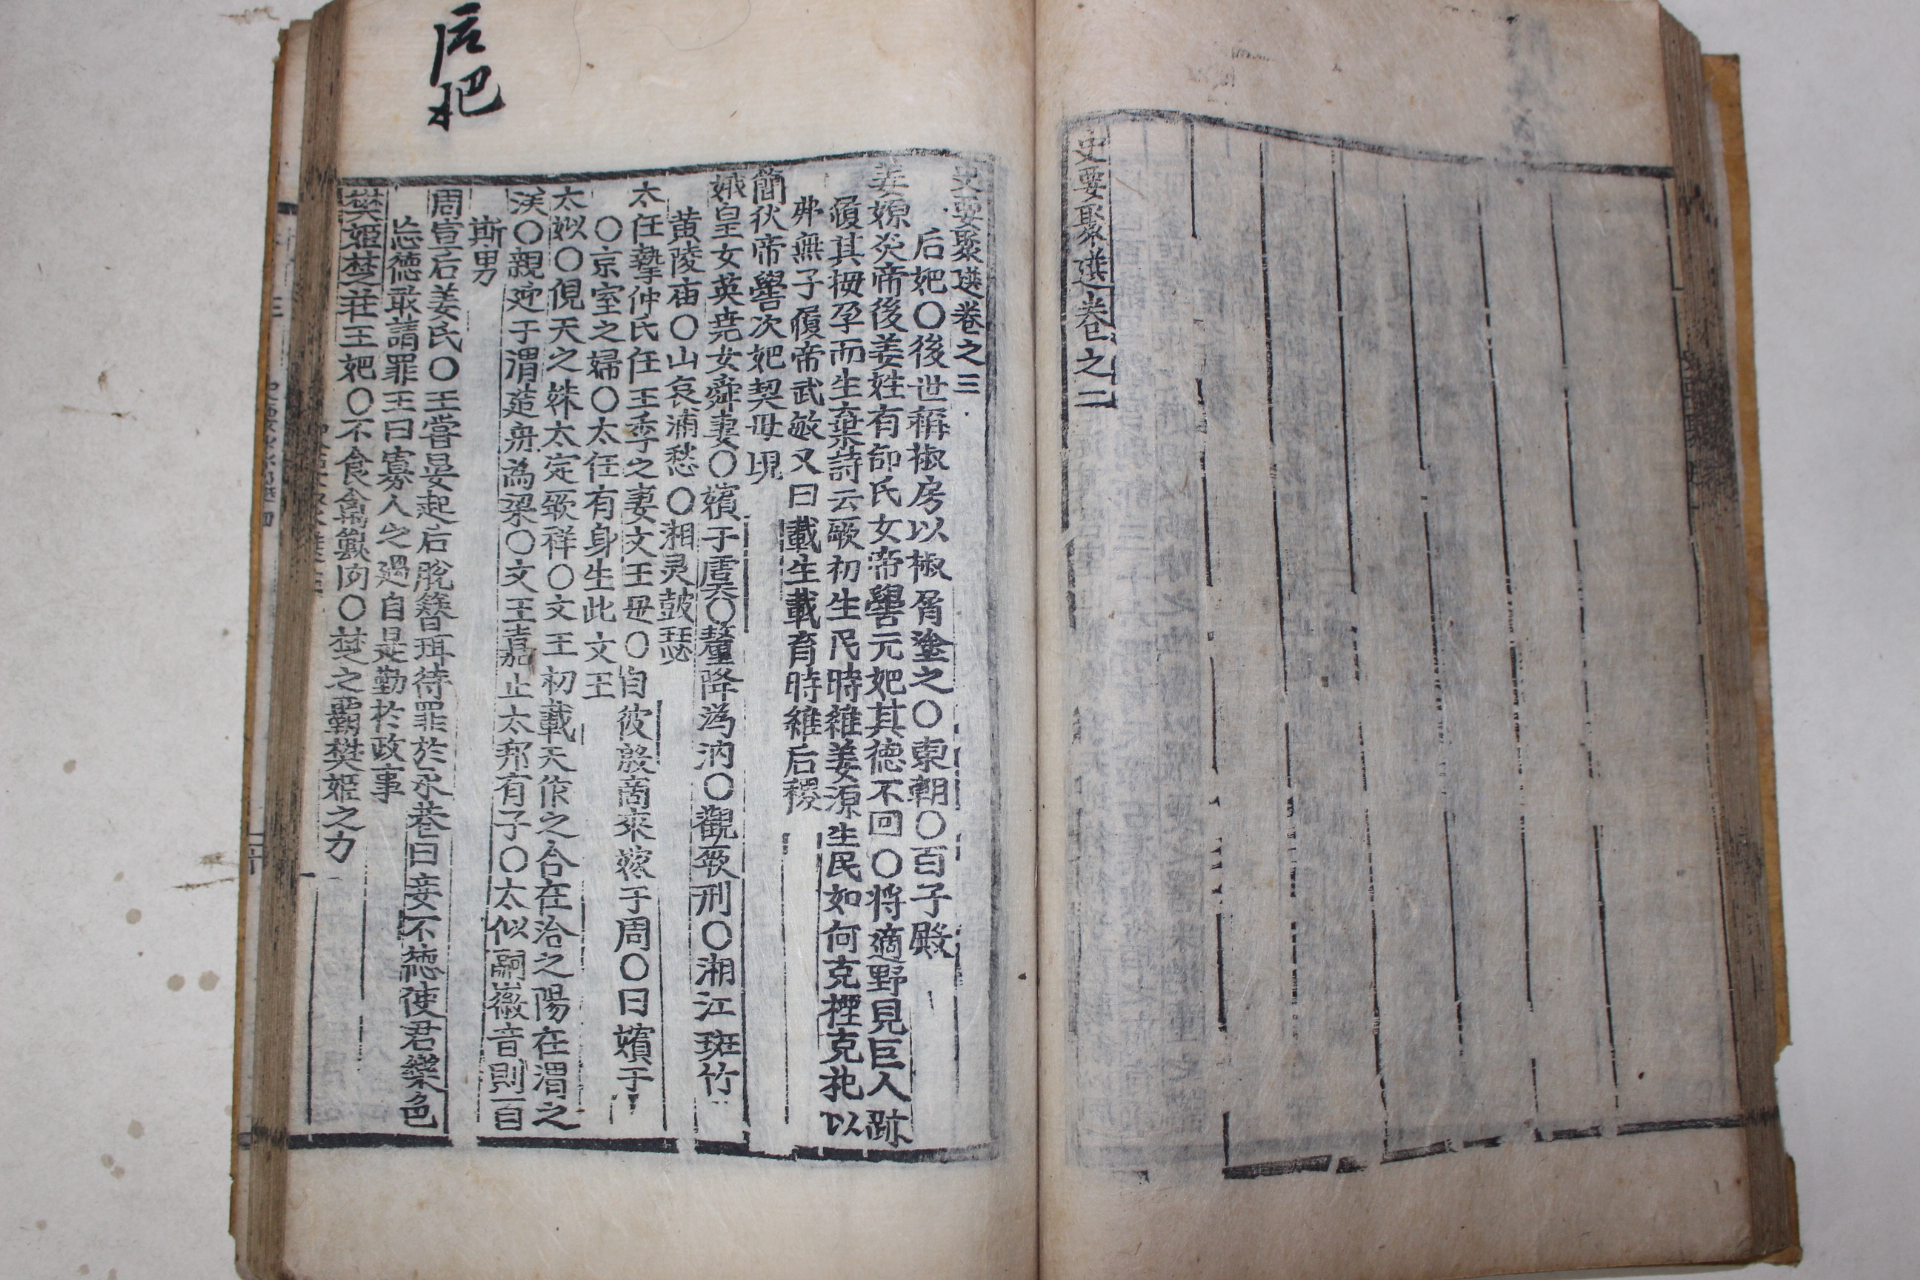 史要聚選卷之二
后妃
史要聚選卷之三
后妃〇後世稱椒房以椒屑塗之〇東朝〇百子殿
姜嫄炎帝後姜姓有邰氏女帝嚳元妃其德不回〇將適野見巨人跡
履其拇孕而生棄詩云厥初生民時維姜源生民如何克禋克祀以
弗無子履帝武敏又曰載生載育時維后稷
簡狄帝嚳次妃契母
娥皇女英堯女舜妻〇嬪于虞〇釐降溈汭〇觀厥刑〇湘江斑竹
黃陵庙〇山哀浦愁〇湘灵鼓瑟
太任摯仲氏任王季之妻文王母〇自彼殷商來嫁于周〇曰嬪于
〇京室之婦〇太任有身生此文王
太姒〇俔天之妹太定厥祥〇文王初載天作之合在洽之陽在渭之
涘〇親迎于渭造舟爲梁〇文王嘉止太邦有子〇太似嗣徽音則百
斯男
周宣后姜氏〇王嘗晏起后脫簪珥待罪於永巷曰妾不德使君樂色
忘德敢請罪王曰寡人之過自是勤於政事
樊姬楚莊王妃〇不食禽獸肉〇楚之霸樊姬之力